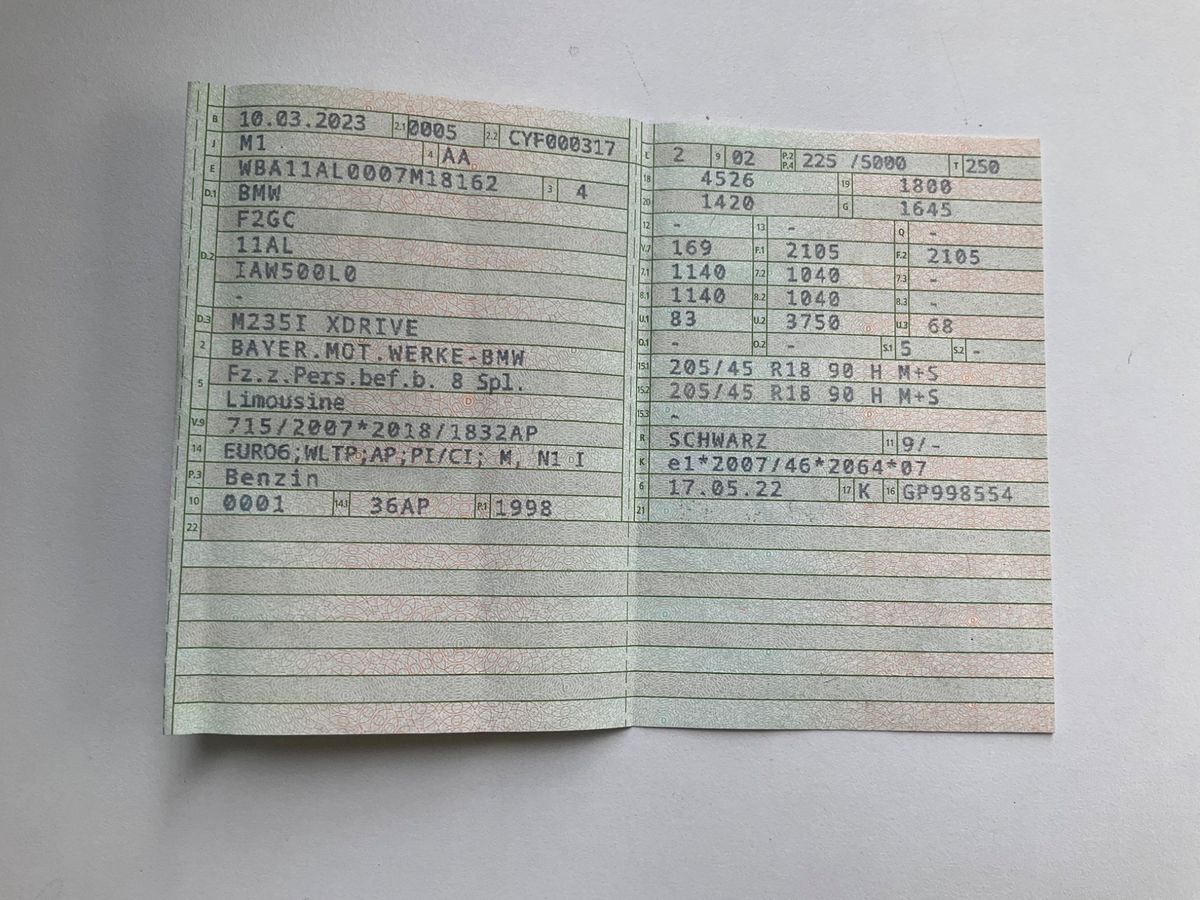 B 10.03.2023 2.1 0005 2.2 CYF000317
J M1 4 AA
E WBA11AL0007M18162 3 4
D.1 BMW
D.2 F2GC
11AL
IAW500L0
-
D.3 M235I XDRIVE
2 BAYER.MOT.WERKE-BMW
5 Fz.z.Pers.bef.b. 8 Spl.
Limousine
V.9 715/2007*2018/1832AP
14 EURO6;WLTP;AP;PI/CI; M, N1 I
P.3 Benzin
10 0001 14.1 36AP P.1 1998
22
L 2 9 02 P.2 P.4 225 /5000 T 250
18 4526 19 1800
20 1420 G 1645
12 - 13 - Q -
V.7 169 F.1 2105 F.2 2105
7.1 1140 7.2 1040 7.3 -
8.1 1140 8.2 1040 8.3 -
U.1 83 U.2 3750 U.3 68
O.1 - O.2 - S.1 5 S.2 -
15.1 205/45 R18 90 H M+S
15.2 205/45 R18 90 H M+S
15.3 -
R SCHWARZ 11 9/-
K e1*2007/46*2064*07
6 17.05.22 17 K 16 GP998554
21